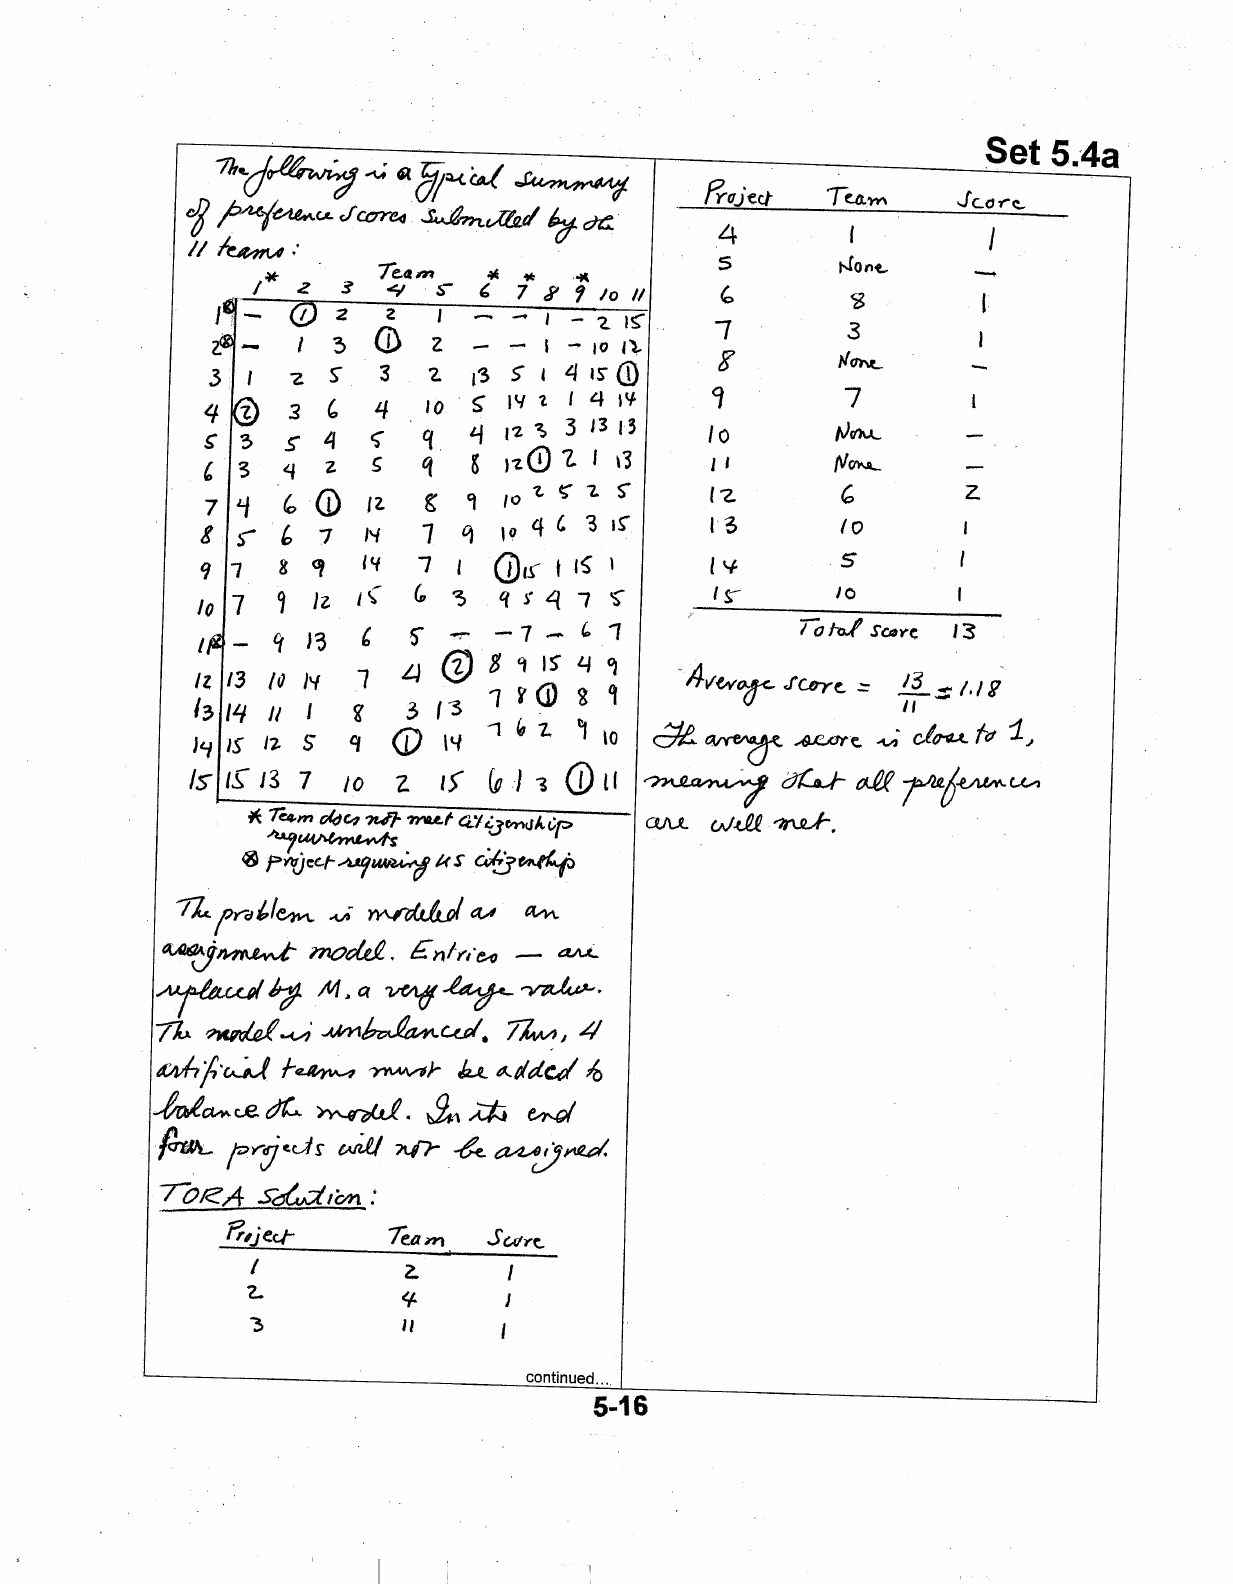 Set 5.4a
The following is a typical summary
of preference scores submitted by the
11 teams:
Team
1* 2 3 4 5 6* 7* 8 9* 10 11
1⊗ — ① 2 2 1 — — 1 — 2 15
2⊗ — 1 3 ① 2 — — 1 — 10 12
3 1 2 5 3 2 13 5 1 4 15 ①
4 ② 3 6 4 10 5 14 2 1 4 14
5 3 5 4 5 9 4 12 3 3 13 13
6 3 4 2 5 9 8 12 ① 2 1 13
7 4 6 ① 12 8 9 10 2 5 2 5
8 5 6 7 14 7 9 10 4 6 3 15
9 7 8 9 14 7 1 ① 15 1 15 1
10 7 9 12 15 6 3 9 5 4 7 5
11⊗ — 9 13 6 5 — — 7 — 6 7
12 13 10 14 7 4 ② 8 9 15 4 9
13 14 11 1 8 3 13 7 8 ① 8 9
14 15 12 5 9 ① 14 7 6 2 9 10
15 15 13 7 10 2 15 6 1 3 ① 11
* Team does not meet citizenship
requirements
⊗ project requiring US citizenship
The problem is modeled as an
assignment model. Entries — are
replaced by M, a very large value.
The model is unbalanced. Thus, 4
artificial teams must be added to
balance the model. In the end
four projects will not be assigned.
TORA Solution:
Project Team Score
1 2 1
2 4 1
3 11 1
continued...
Project Team Score
4 1 1
5 None —
6 8 1
7 3 1
8 None —
9 7 1
10 None —
11 None —
12 6 2
13 10 1
14 5 1
15 10 1
Total score 13
Average score = 13/11 = 1.18
The average score is close to 1,
meaning that all preferences
are well met.
5-16